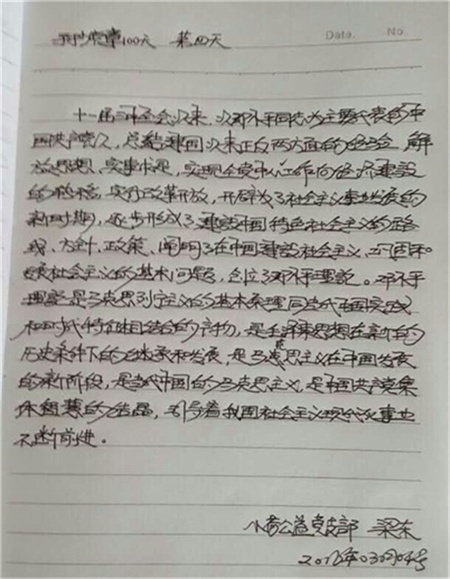 手抄党章100天 第10天
Date. No.
十一届三中全会以来，以邓小平同志为主要代表的中
国共产党人，总结建国以来正反两方面的经验，解
放思想，实事求是，实现全党中心工作向经济建设
的转移，实行改革开放，开辟了社会主义事业发展的
新时期，逐步形成了建设中国特色社会主义的路
线、方针、政策，阐明了在中国建设社会主义、巩固和
发展社会主义的基本问题，创立了邓小平理论。邓小平
理论是马克思列宁主义的基本原理同当代中国实践
和时代特征相结合的产物，是毛泽东思想在新的
历史条件下的继承和发展，是马克思主义在中国发展
的新阶段，是当代中国的马克思主义，是中国共产党集
体智慧的结晶，引导着我国社会主义现代化事业
不断前进。
公益党支部 梁东